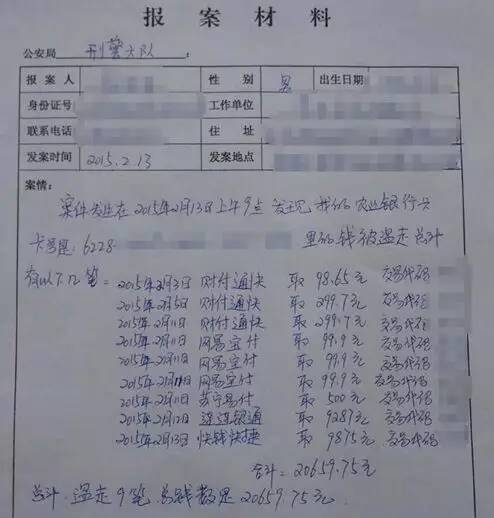 报案材料
公安局 刑警大队 :
报案人 性别 男 出生日期
身份证号 工作单位
联系电话 住址
发案时间 2015.2.13 发案地点
案情:
案件发生在2015年2月13日上午9点 发现 我的农业银行卡
卡号是:6228 里的钱被盗走总计
有以下几笔=2015年2月3日 财付通快 取 98.65元 交易代码
2015年2月5日 财付通快 取 299.7元 交易代码
2015年2月11日 财付通快 取 299.7元 交易代码
2015年2月11日 网易宝付 取 99.9元 交易代码
2015年2月11日 网易宝付 取 99.9元 交易代码
2015年2月11日 网易宝付 取 99.9元 交易代码
2015年2月11日 苏宁易付 取 500元 交易代码
2015年2月12日 连连银通 取 9287元 交易代码
2015年2月13日 快钱快捷 取 9875元 交易代码
合计=20659.75元
总计.盗走9笔 总钱数是20659.75元